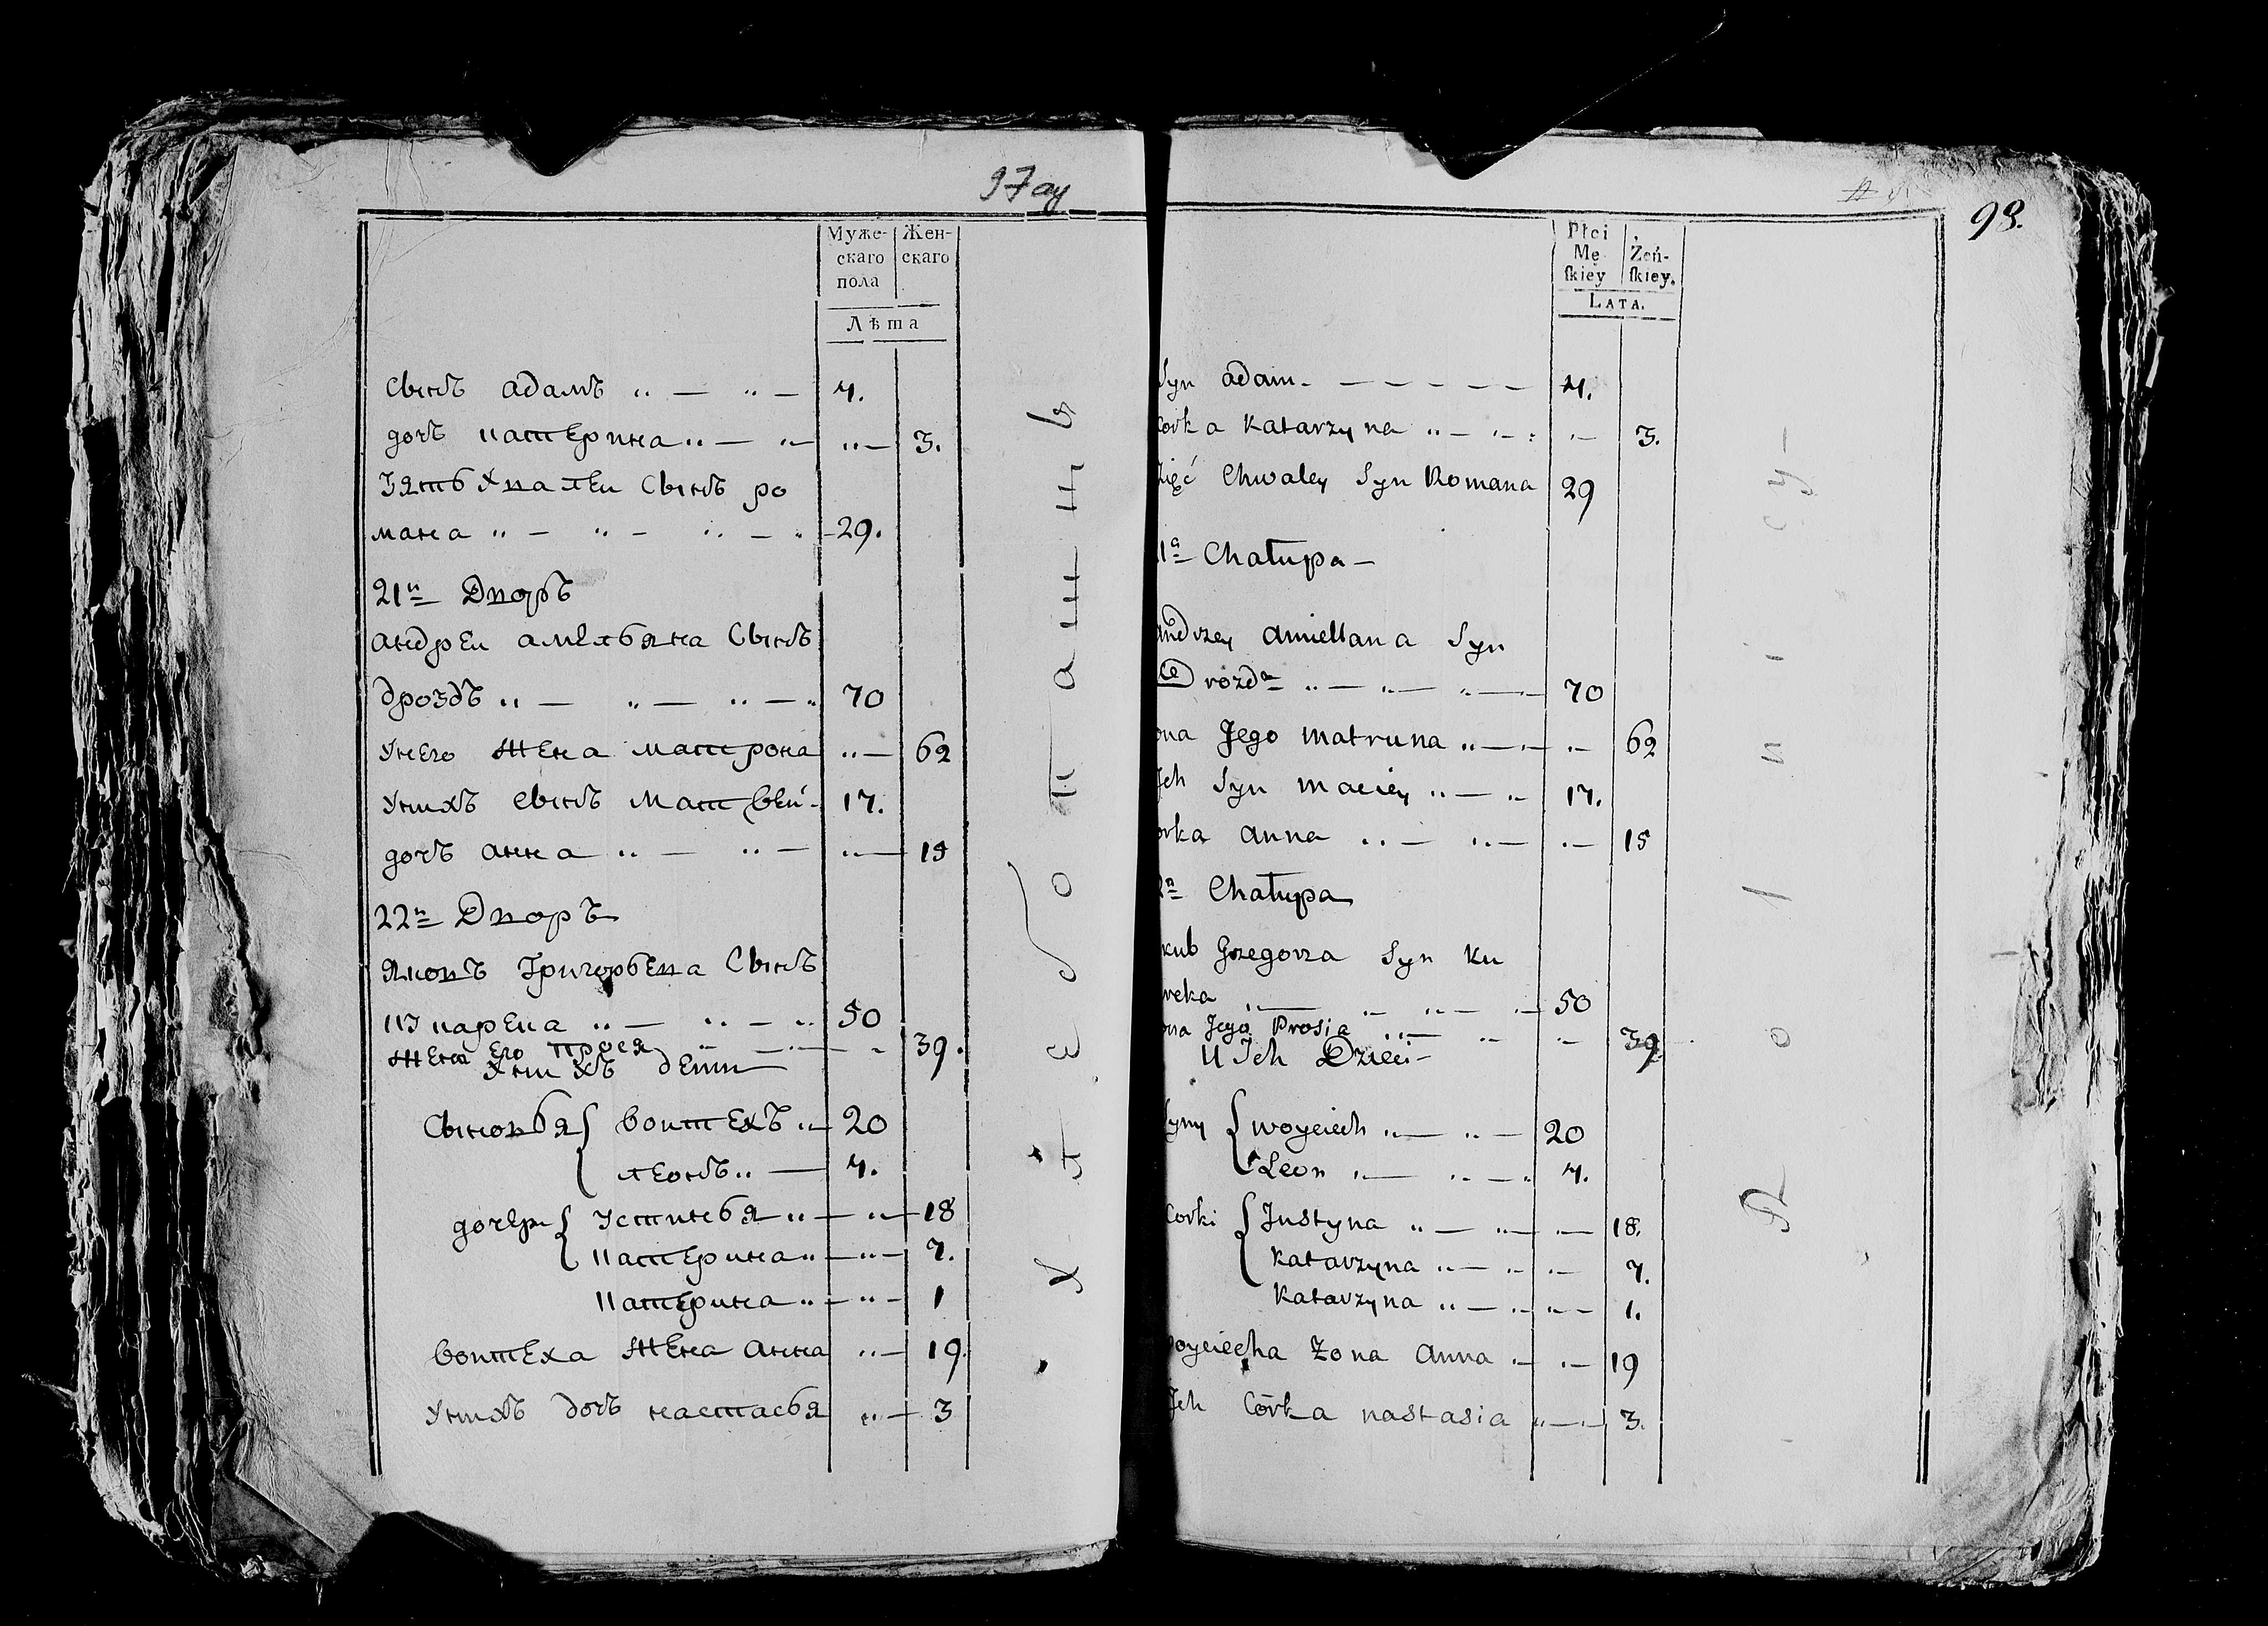 97
Муже-
скаго
пола
Жен-
скаго
Лѣта
Сынъ адамъ 4.
дочъ катерина 3.
Зять Хвалеи Сынъ ро
мана 29.
21й Дворъ
андреи амельяна Сынъ
дроздъ 70
унего жена матрона 62
унихъ сынъ матвей 17.
дочъ анна 15
22й Дворъ
Яковъ Григорьева Сынъ
кухарека 50
жена его прося 39.
унихъ дети
Сыновья воитехъ 20
леонъ 4.
дочери устинья 18
катерина 7.
катерина 1
воитеха жена анна 19.
унихъ дочъ настасья 3
Хлебопашцы
98.
Płci
Mę
skiey
Żeń-
skiey.
LATA.
Syn adam 4.
Corka Katarzyna 3.
Zięć Chwaley Syn Romana 29
1a Chałupa
andrzey amiellana Syn
Drozda 70
ona Jego matruna 62
Jch Syn maciey 17.
orka anna 15
2a Chałupa
kub Grzegorza Syn Ku
reka 50
ona Jego Prosia 39
U Jch Dzieci
Syny Woyciech 20
Leon 4.
Corki Justyna 18.
Katarzyna 7.
Katarzyna 1.
woyciecha Żona Anna 19
Jch Córka nastasia 3.
Rolnicy